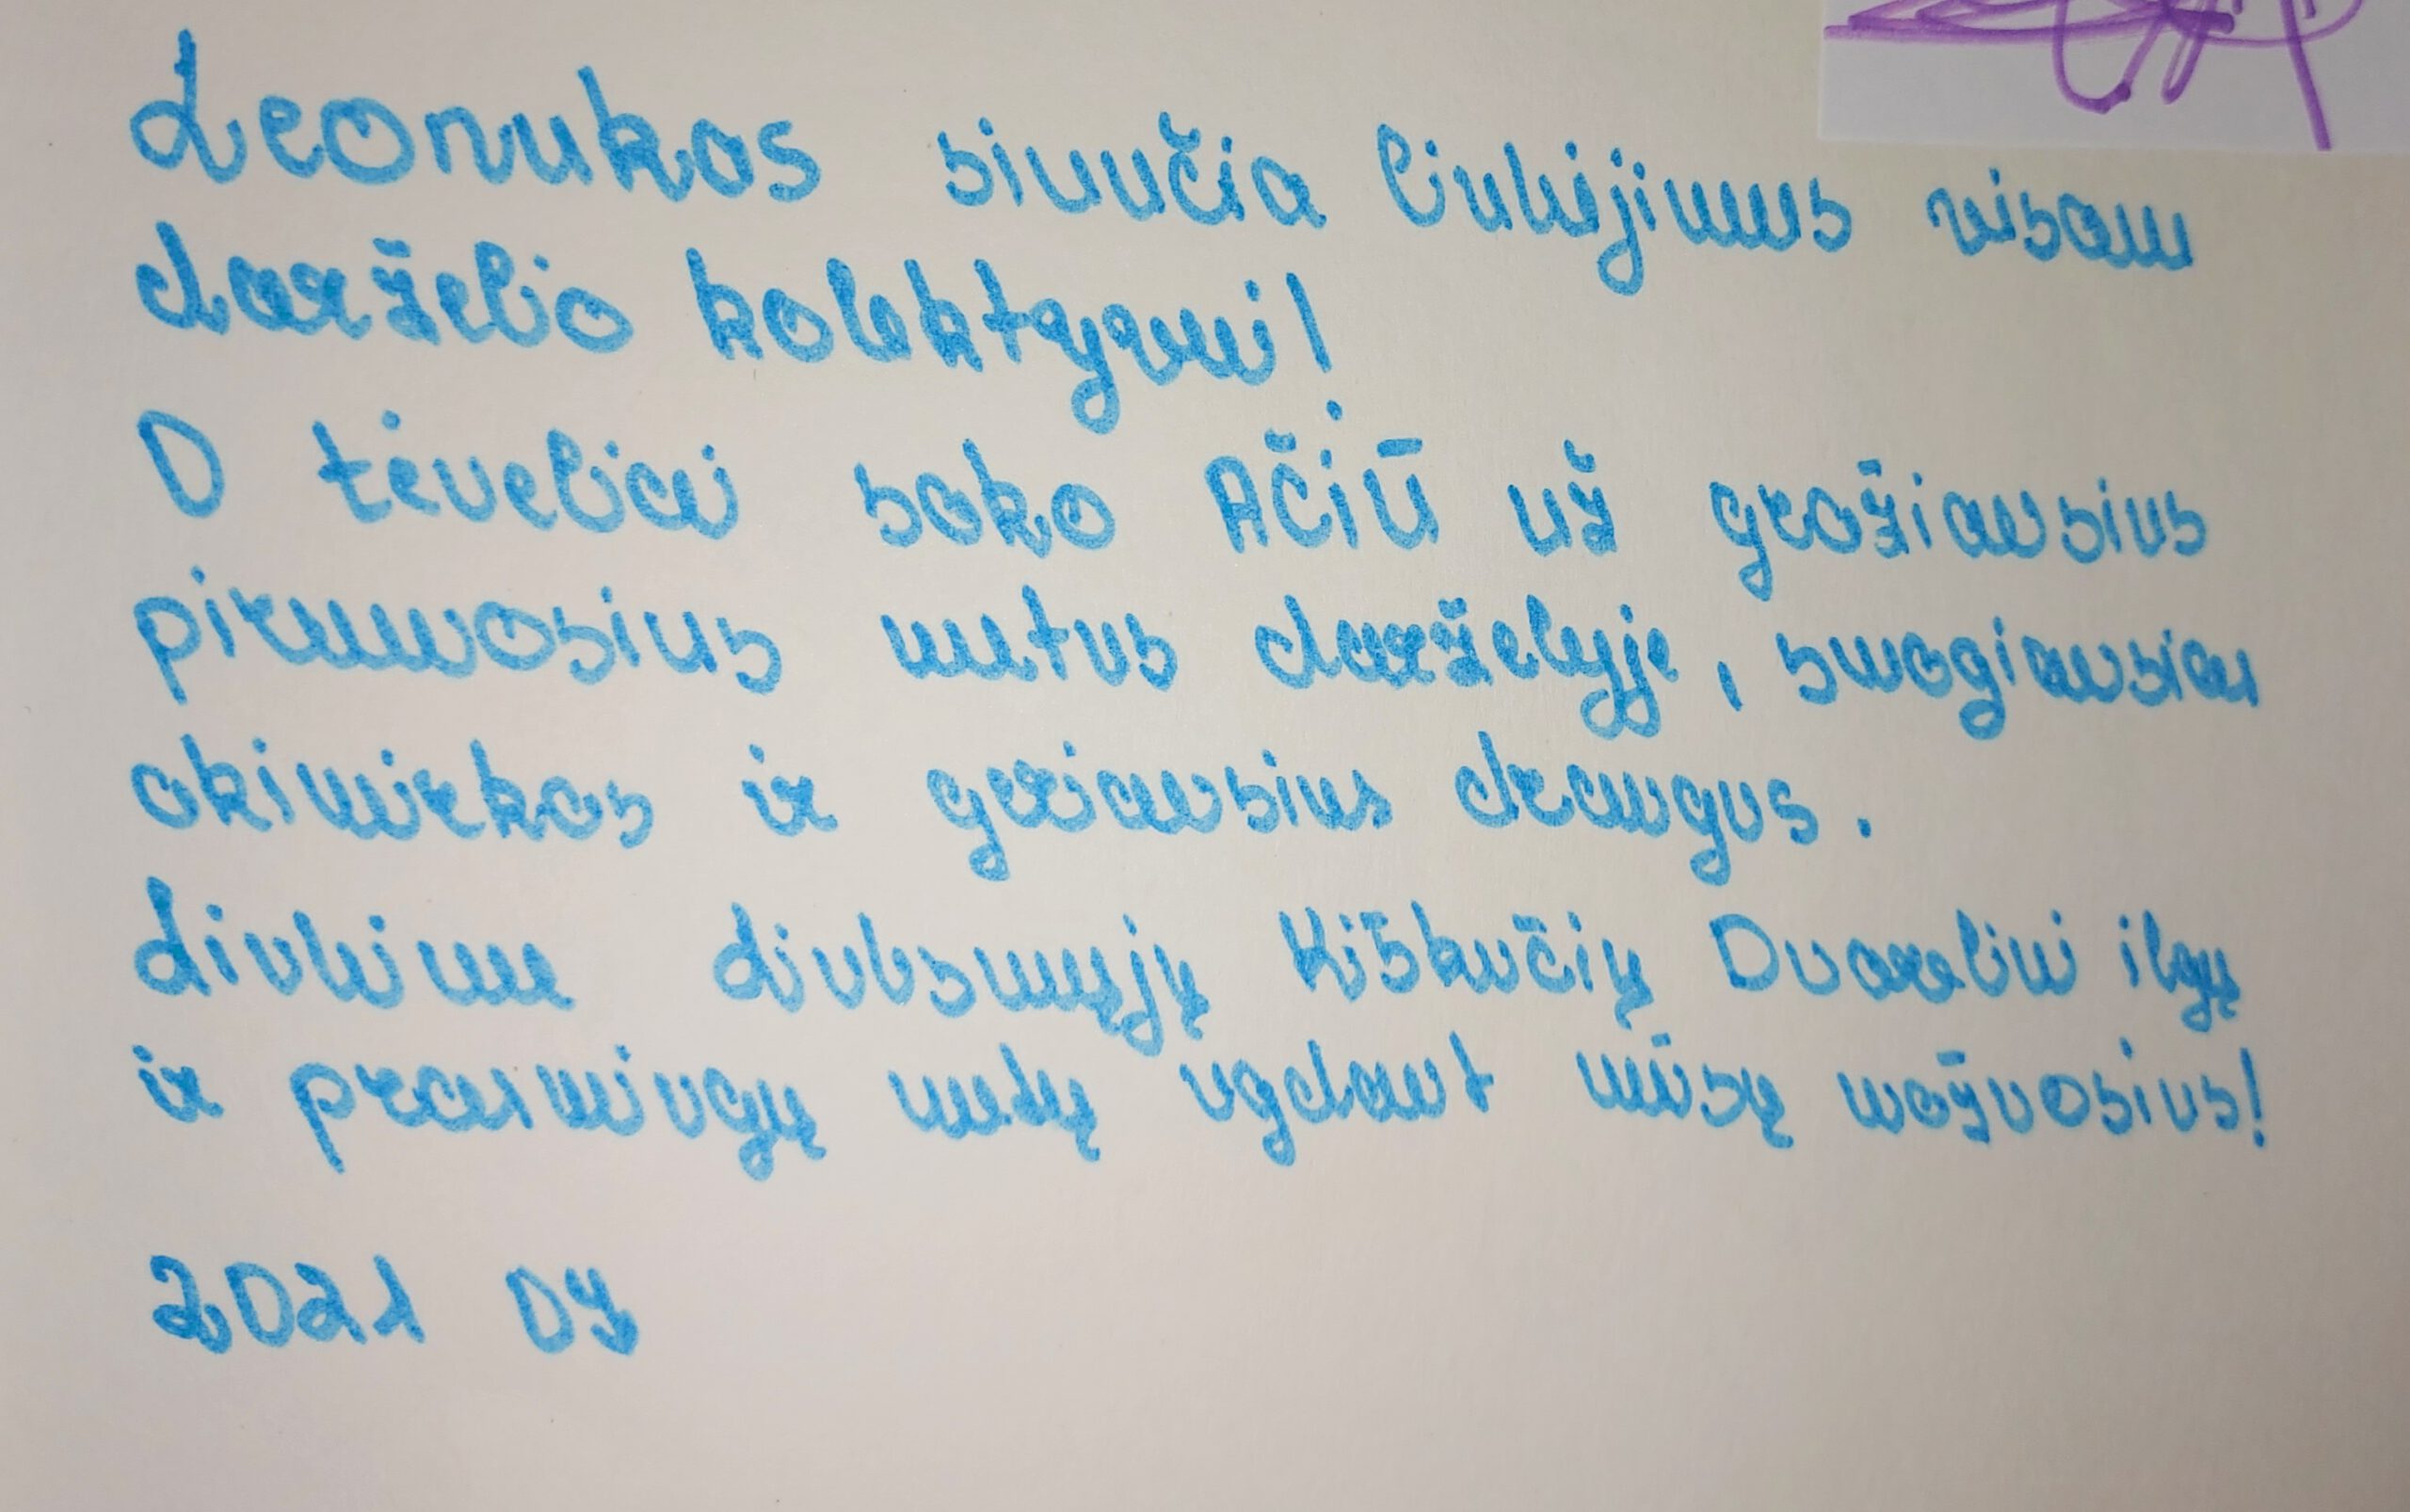 Leonukas siunčia linkėjimus visam
darželio kolektyvui!
O tėveliai sako AČIŪ už gražiausius
pirmuosius metus darželyje, smagiausias
akimirkas ir geriausius draugus.
Linkime Linksmųjų Kiškučių Dvareliui ilgų
ir prasmingų metų ugdant mūsų mažuosius!
2021 04